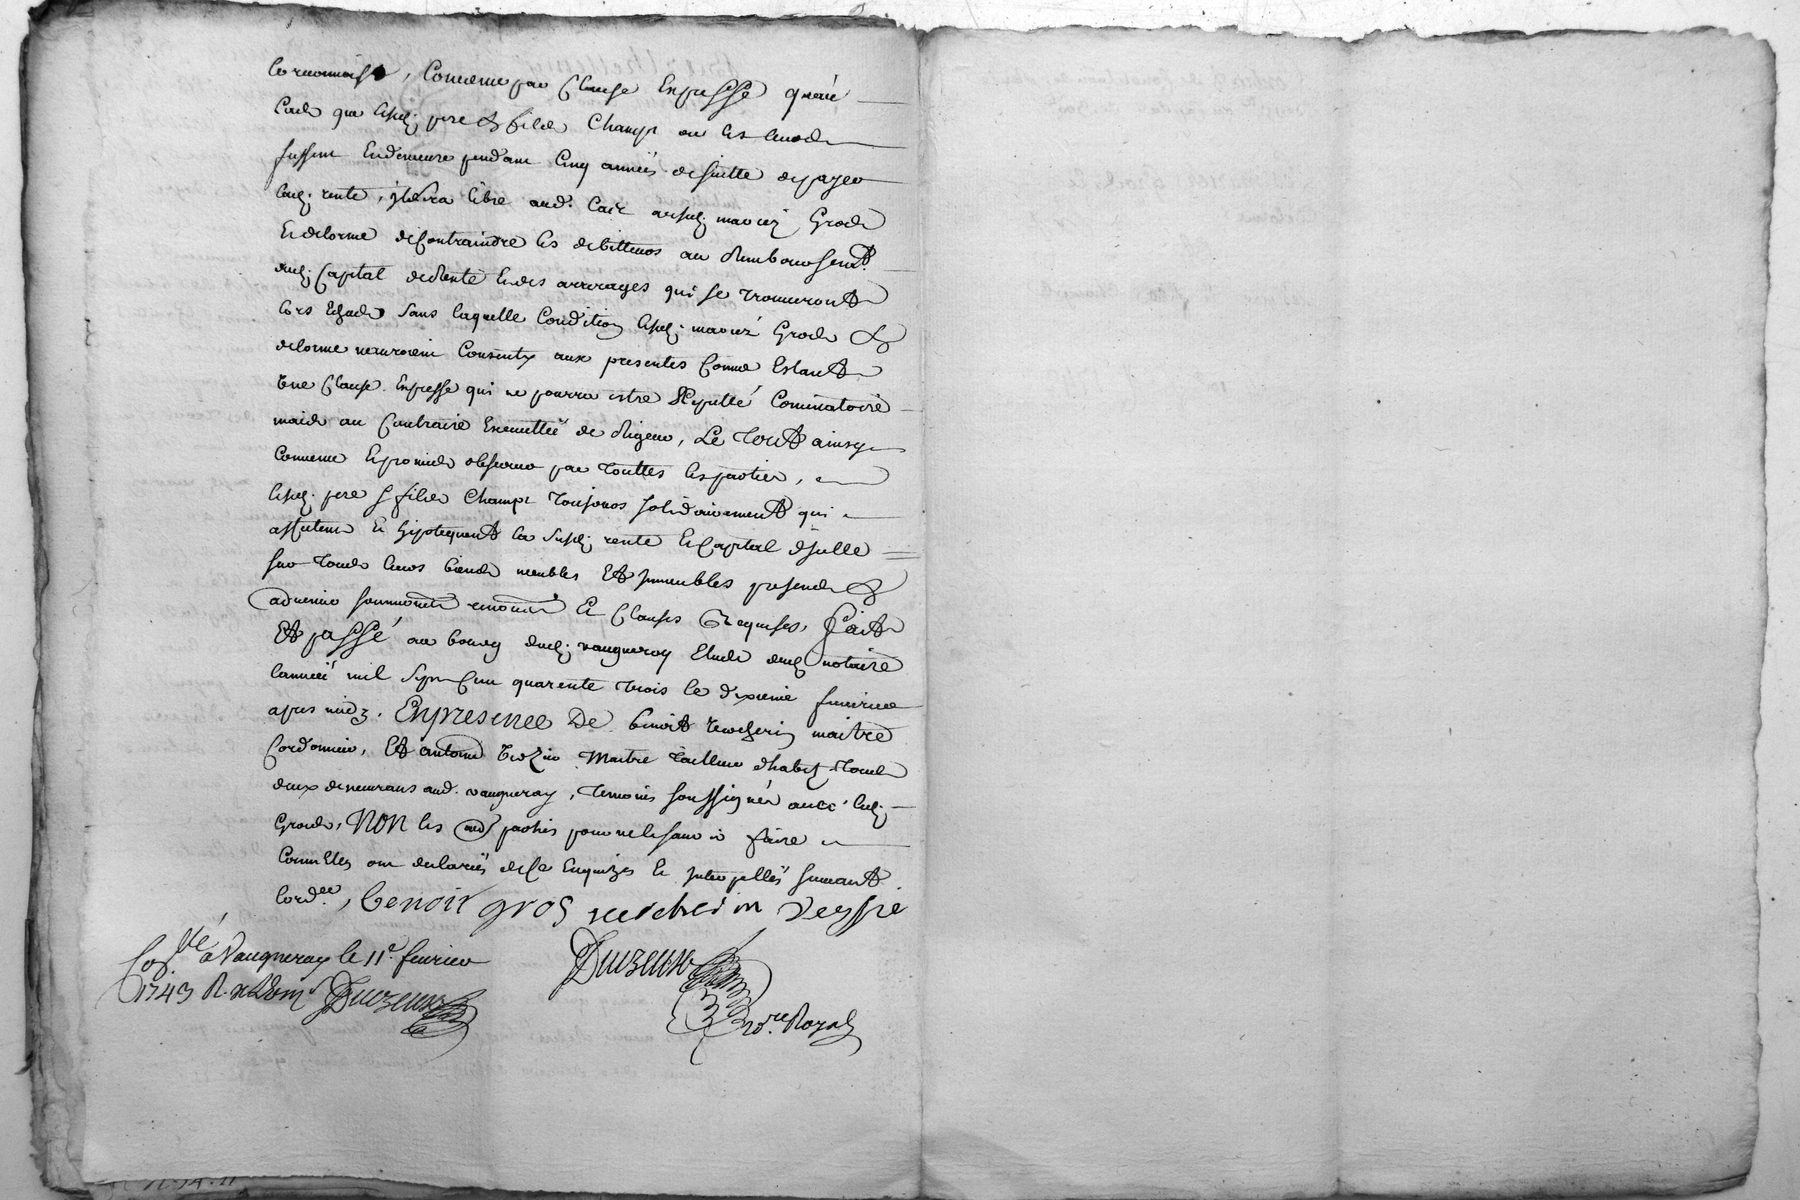 Convenu par Clause Expresse qu'en
Cas que lesd. pere & fils Champt ou les leurs
fussent En demeure pendant Cinq années de suitte de payer
lad. rente, il sera libre aud. Cair auxd. mariez Gros
Et delorme de Contraindre les debitteurs au Remboursemt.
dud. Capital de Rente Et des arrerages qui se trouveront
lors Echeus sans laquelle Condition lesd. mariez Gros &
delorme n'auroient Consenty aux presentes Comme Estant
Une Clause Expresse qui ne pourra estre Reputté Cominatoire
mais au Contraire Executtée de Rigueur, Le Tout ainsy
Convenu Et promis observer par Touttes les parties,
lesd. pere & fils Champt Toujours solidairement qui
affectent Et hipotequent la susd. rente Et Capital d'jcelle
sur Tous leurs biens meubles Et jmmeubles presents &
advenir soumions renons Et Clauses Requises, fait
Et passé au bourg dud. vaugneray Etude dud. notaire
l'année mil Sept Cent quarente trois le dixieme fevrier
apres midy. En presence De benoit reverchin maitre
Cordonnier, Et antoine Maitre Tailleur d'habits Tous
deux demeurans aud. vaugneray, Temoins soussignés avec led.
Gros, NON les aud. parties pour ne le savoir faire
Comm'Elles ont declarées de ce Enquizes Et jnterpellées suivant
l'ord.ce, benoit gros Veyssre
à Vaugneray le 11e. fevrier
1743
No.re Royal